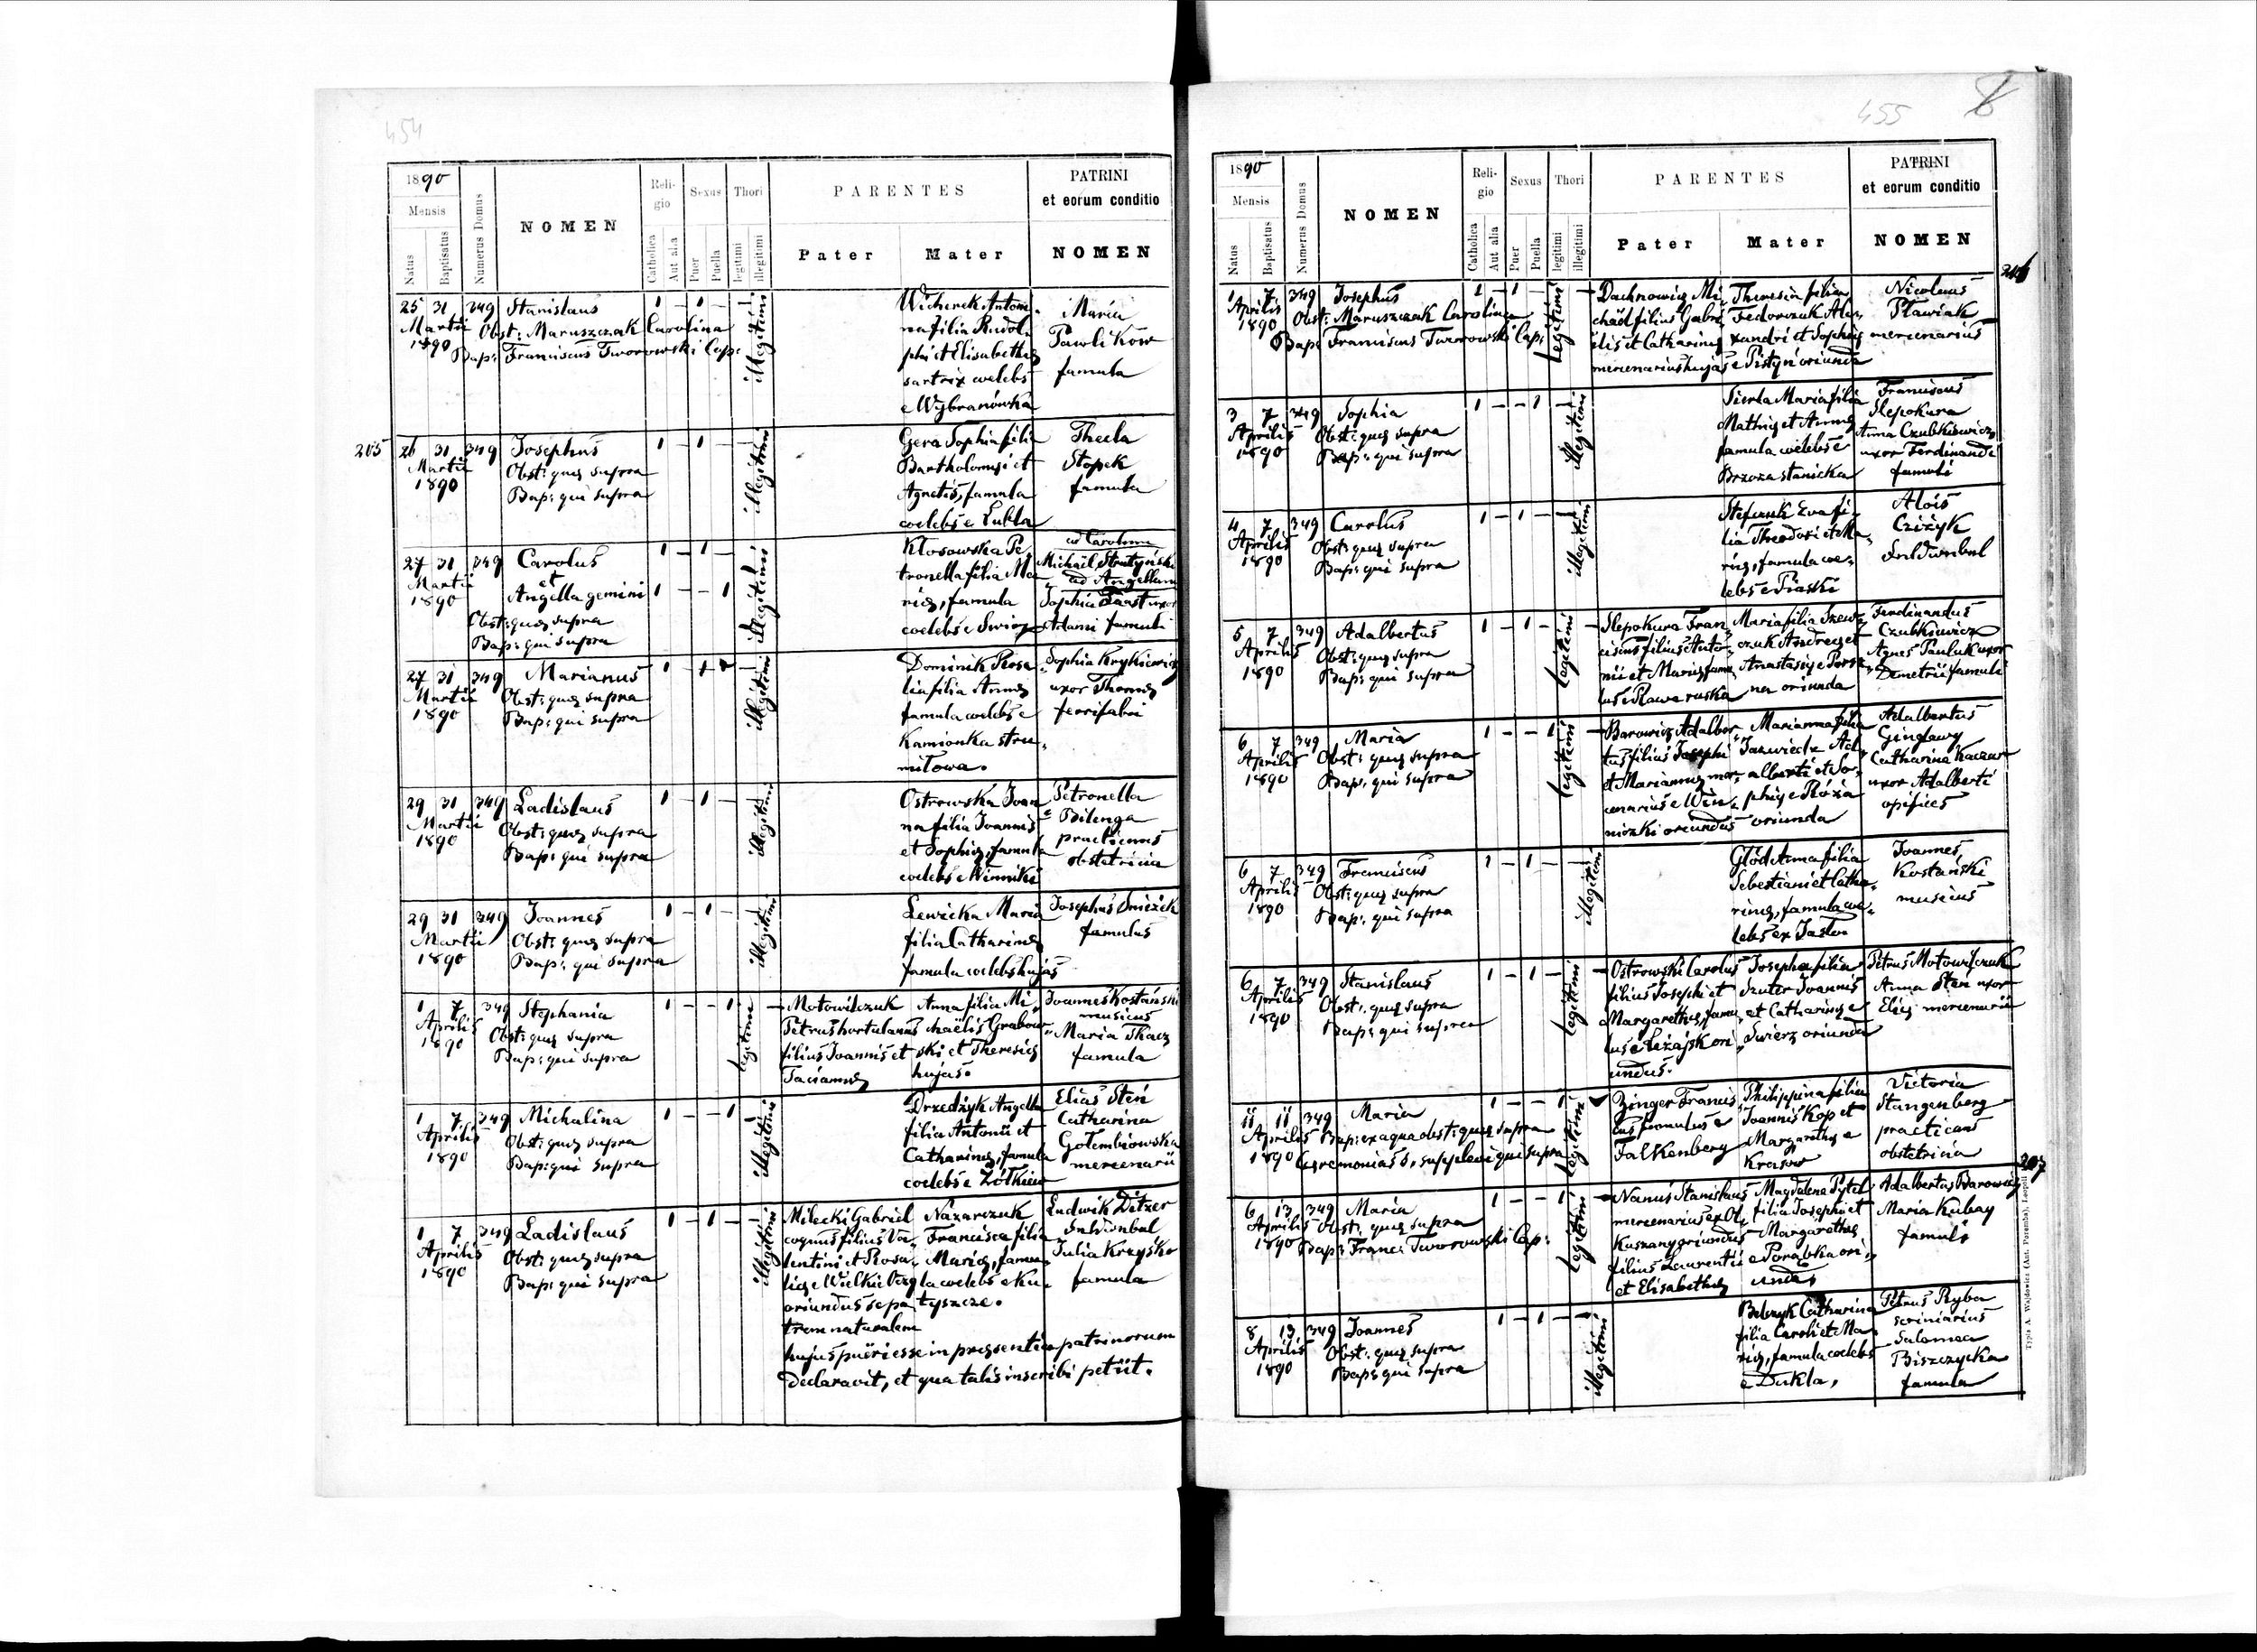 454
1890
Mensis
Natus
Baptisatus
Numerus Domus
NOMEN
Religio
Catholica
Aut alia
Sexus
Puer
Puella
Thori
legitimi
illegitimi
PARENTES
Pater
Mater
PATRINI
et eorum conditio
NOMEN
25 31 349 Stanislaus 1 – 1 – 1
Martii Obst: Maruszczak Carolina
1890 Bap: Franciscus Tworowski Cop:
illegitimi
Wicherek Antoni-
na filia Rudol-
phi et Elisabethæ
sartrix coelebs
e Wybranówka
Maria
Pawlikow
famula
205
26 31 349 Josephus 1 – 1 – 1
Martii Obst: quæ supra
1890 Bap: qui supra
illegitimi
Gera Sophia filia
Bartholomæi et
Agnetis, famula
coelebs e Lubla
Thecla
Stopek
famula
27 31 349 Carolus 1 – 1 – 1
Martii et
1890 Angella gemini 1 – – 1
Obst: quæ supra
Bap: qui supra
illegitimi
Kłosowska Pe-
tronella filia Ma-
riæ, famula
coelebs e Swirz
ad Carolum
Michaël Strutyński
ad Angellam
Sophia Faast uxor
Adami famuli
27 31 349 Marianus 1 – 1 – 1
Martii Obst: quæ supra
1890 Bap: qui supra
illegitimi
Dominik Rosa-
lia filia Annæ
famula coelebs e
Kamionka stru-
miłowa.
Sophia Krykiewicz
uxor Thomæ
ferrifabri
29 31 349 Ladislaus 1 – 1 – 1
Martii Obst: quæ supra
1890 Bap: qui supra
illegitimi
Ostrowska Joan-
na filia Joannis
et Sophiæ, famula
coelebs e Winniki
Petronella
Bilenga
practicans
obstetricia
29 31 349 Joannes 1 – 1 – 1
Martii Obst: quæ supra
1890 Bap: qui supra
illegitimi
Lewicka Maria
filia Catharinæ
famula coelebs hujas
Josephus Snieżek
famulus
1 7 349 Stephania 1 – – 1 –
Aprilis Obst: quæ supra
1890 Bap: qui supra
legitimi
Motowilczuk
Petrus hortulanus
filius Joannis et
Tacianæ
Anna filia Mi-
chaëlis Grabow-
ski et Theresiæ
hujas.
Joannes Kostański
musicus
Maria Tkacz
famula
1 7 349 Michalina 1 – – 1 1
Aprilis Obst: quæ supra
1890 Bap: qui supra
illegitimi
Drzedzyk Angella
filia Antonii et
Catharinæ, famula
coelebs e Żółkiew
Elias Sten
Catharina
Gołembiowska
mercenarii
1 7 349 Ladislaus 1 – 1 – 1
Aprilis Obst: quæ supra
1890 Bap: qui supra
illegitimi
Milecki Gabriel
coquus filius Va-
lentini et Rosa-
liæ e Wielkie Oczy
oriundus se pa-
trem naturalem
hujus pueri esse in præsentia patrinorum
declaravit, et qua talis inscribi petiit.
Nazarczuk
Francisca filia
Mariæ, famu-
la coelebs e Ku-
tyszcze.
Ludwik Ditzer
Julia Krzyśko
famula
455
1890
Mensis
Natus
Baptisatus
Numerus Domus
NOMEN
Religio
Catholica
Aut alia
Sexus
Puer
Puella
Thori
legitimi
illegitimi
PARENTES
Pater
Mater
PATRINI
et eorum conditio
NOMEN
206
1 7 349 Josephus 1 – 1 – 1 –
Aprilis Obst: Maruszczak Carolina
1890 Bap: Franciscus Tworowski Cop:
legitimi
Dachnowicz Mi-
chaël filius Gabri-
elis et Catharinæ
mercenarius hujas
Theresia filia
Fedorczuk Ale-
xandri et Sophiæ
e Pistyn oriunda
Nicolaus
Pławiak
mercenarius
3 7 349 Sophia 1 – – 1 – 1
Aprilis Obst: quæ supra
1890 Bap: qui supra
illegitimi
Sierla Maria filia
Mathiæ et Annæ
famula coelebs e
Brzoza stanicka
Franciscus
Slepokura
Anna Czubkiewicz
uxor Ferdinandi
famuli
4 7 349 Carolus 1 – 1 – 1
Aprilis Obst: quæ supra
1890 Bap: qui supra
illegitimi
Stefczuk Eva fi-
lia Theodori et Ma-
riæ, famula coe-
lebs e Piaski
Alois
Cziżyk
5 7 349 Adalbertus 1 – 1 – –
Aprilis Obst: quæ supra
1890 Bap: qui supra
legitimi
Slepokura Fran-
ciscus filius Anto-
nii et Mariæ, famu-
lus e Rawa ruska
Maria filia Szew-
czuk Andreæ et
Anastasiæ e Porsz-
na oriunda
Ferdinandus
Czubkiewicz
Agnes Pauluk uxor
Demetrii famuli
6 7 349 Maria 1 – – 1 –
Aprilis Obst: quæ supra
1890 Bap: qui supra
legitimi
Barowicz Adalber-
tus filius Josephi
et Mariannæ mer-
cenarius e Win-
niczki oriundus
Marianna filia
Jazwiecka Ad-
alberti et So-
phiæ e Róża
oriunda
Adalbertus
Ginglawy
Catharina Kaczor
uxor Adalberti
opifices
6 7 349 Franciscus 1 – 1 – 1
Aprilis Obst: quæ supra
1890 Bap: qui supra
illegitimi
Głód Anna filia
Sebestiani et Catha-
rinæ, famula coe-
lebs ex Jasło
Joannes
Kostański
musicus
6 7 349 Stanislaus 1 – 1 – –
Aprilis Obst: quæ supra
1890 Bap: qui supra
legitimi
Ostrowski Carolus
filius Josephi et
Margarethæ, famu-
lus e Leżajsk ori-
undus.
Josepha filia
Szuter Joannis
et Catharinæ e
Swierz oriunda
Petrus Motowilczuk
Anna Sten uxor
Eliæ mercenarii
11 11 349 Maria 1 – – 1
Aprilis Bap: ex aqua obst: quæ supra
1890 Cæremonias s. supplevi qui supra
legitimi
Zinger Francis-
cus famulus e
Falkenberg
Philippina filia
Joannis Kop et
Margarethæ e
Krasow
Victoria
Stangenberg
practicans
obstetricia
207
6 13 349 Maria 1 – – 1 –
Aprilis Obst: quæ supra
1890 Bap: Franc: Tworowski Cop:
legitimi
Nanus Stanislaus
mercenarius ex Ol-
kuszany oriundus
filius Laurentii
et Elisabethæ
Magdalena Pytel
filia Josephi et
Margarethæ
e Porąbka ori-
unda
Adalbertus Barowicz
Maria Kubay
famuli
8 13 349 Joannes 1 – 1 – 1
Aprilis Obst: quæ supra
1890 Bap: qui supra
illegitimi
Belczyk Catharina
filia Caroli et Ma-
riæ, famula coelebs
e Dukla,
Petrus Ryba
scriniarius
Salomea
Biszczycka
famula
Typis A. Wajdowicz (Ant. Poremba), Leopoli